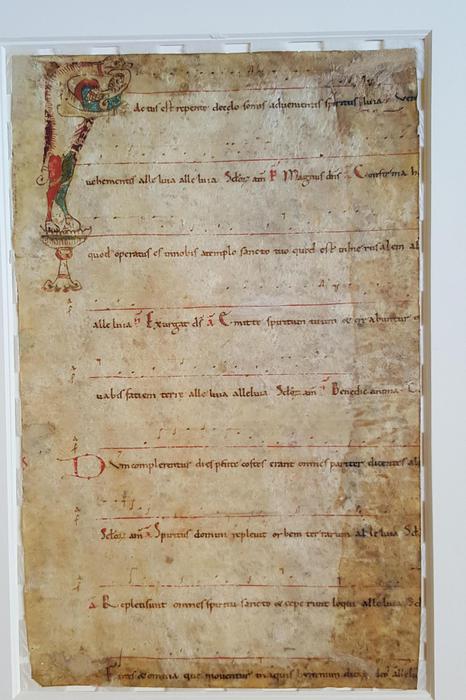 F actus est repente decelo sonus advenientis spiritus
vehementis alleluia alleluia Sclor am P Magnus dns A Confirma h
quod operatus es innobis atemplo sancto tuo quod est inhierusalem al
alleluia P Exurgat ds A Emitte spiritum tuum et
vabis faciem terre alleluia alleluia Sclor am P Benedic anima
D um complerentur dies pente costes erant omnes pariter dicentes al
Sclor am A Spiritus domini replevit orbem terrarum alleluia Scl
A Repleti sunt omnes spiritu sancto et ceperunt loqui alleluia Scl
Fontes et omnia que moventur inaquis hymnum